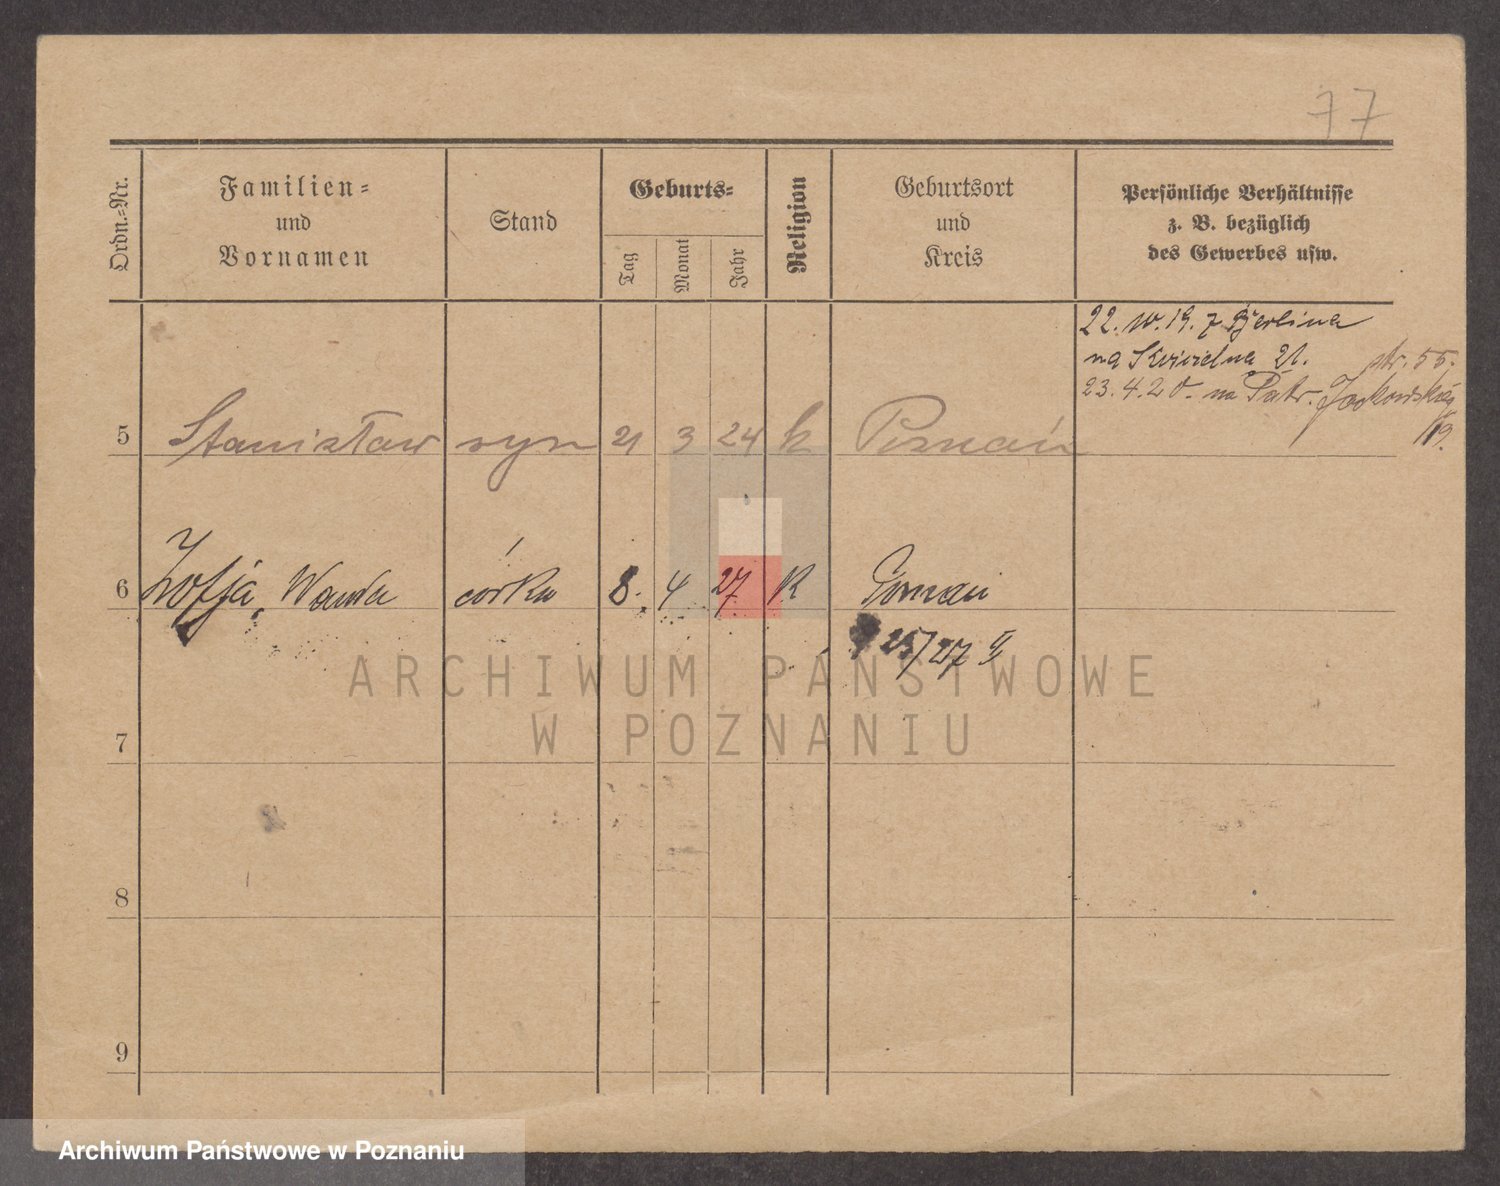 77
Ordn.=Nr.
Familien=
und
Vornamen
Stand
Geburts=
Tag
Monat
Jahr
Religion
Geburtsort
und
Kreis
Persönliche Verhältnisse
z. B. bezüglich
des Gewerbes usw.
22. 10. 19. z Berlina
na 21. str. 55.
23. 4. 20. na Patr. Jackowskiego
19.
5 Stanisław syn 21 3 24 k Poznań
6 Zofja, Wanda córka 8. 4 27 K Poznań
25/27 II
ARCHIWUM PAŃSTWOWE
W POZNANIU
7
8
9
Archiwum Państwowe w Poznaniu